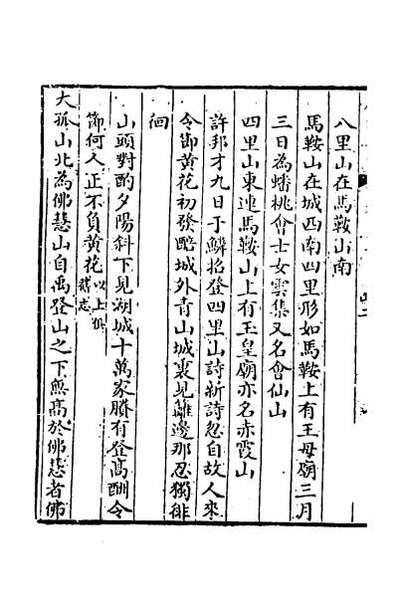 八里山在馬鞍山南
馬鞍山在城西南四里形如馬鞍上有王母廟三月
三日為蟠桃會士女雲集又名會仙山
四里山東連馬鞍山上有玉皇廟亦名赤霞山
許邦才九日于鱗招登四里山詩新詩忽自故人來
令節黃花初發醅城外青山城裏見籬邊那忍獨徘
徊
山頭對酌夕陽斜下見湖城十萬家賸有登高酬令
節何人正不負黃花以上俱
大孤山北為佛慧山自禹登山之下無高於佛慧者佛